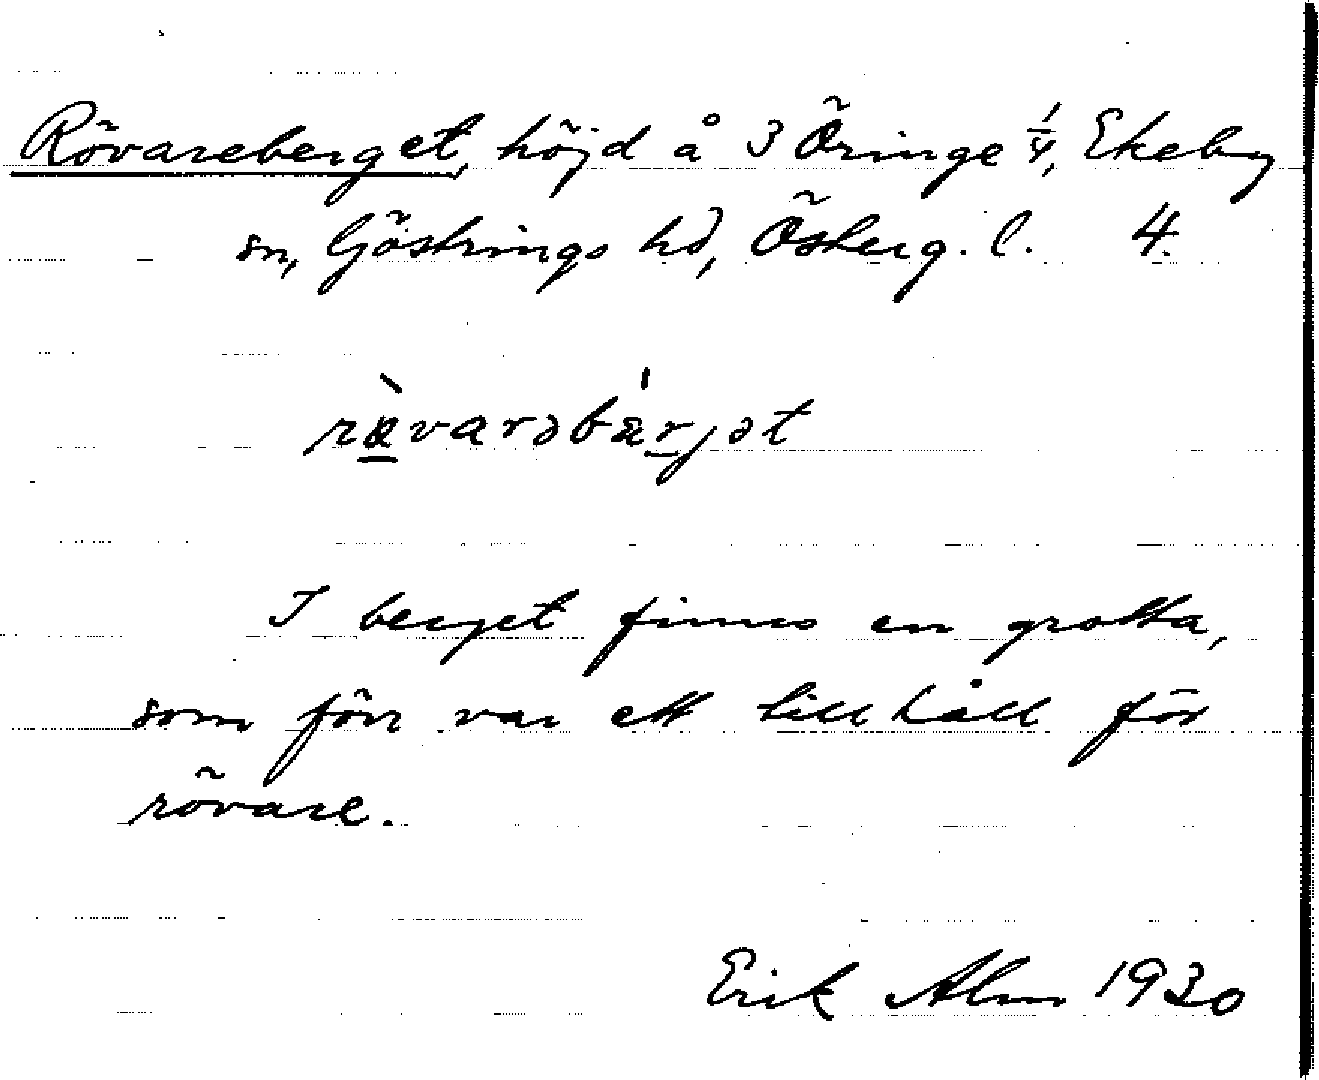 Rövareberget, höjd å 3 Öringe ¼, Ekeby
sn, Göstrings hd, Österg. l. 4.
I berget finnes en grotta,
som förr var ett tillhåll för
rövare.
Erik Alm 1930